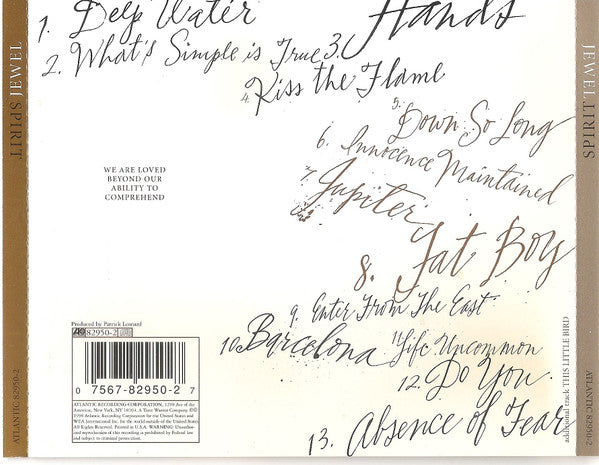 1. Deep Water
2. What's Simple is True
3. Hands
4. Kiss the Flame
5. Down So Long
6. Innocence Maintained
7. Jupiter
8. Fat Boy
9. Enter From The East
10. Barcelona
11. Life Uncommon
12. Do You
13. Absence of Fear
WE ARE LOVED
BEYOND OUR
ABILITY TO
COMPREHEND
Produced by Patrick Leonard
82950-2
0 7567-82950-2 7
ATLANTIC RECORDING CORPORATION, 1290 Ave of the
Americas, New York, NY 10104. A Time Warner Company. ©℗
1998 Atlantic Recording Corporation for the United States and
WEA International Inc. for the world outside of the United
States. Printed in U.S.A. WARNING: Unauthor-
reproduction of this recording is prohibited by Federal law
and subject to criminal prosecution.
SPIRIT JEWEL
ATLANTIC 82950-2
additional track THIS LITTLE BIRD
JEWEL SPIRIT
ATLANTIC 82950-2